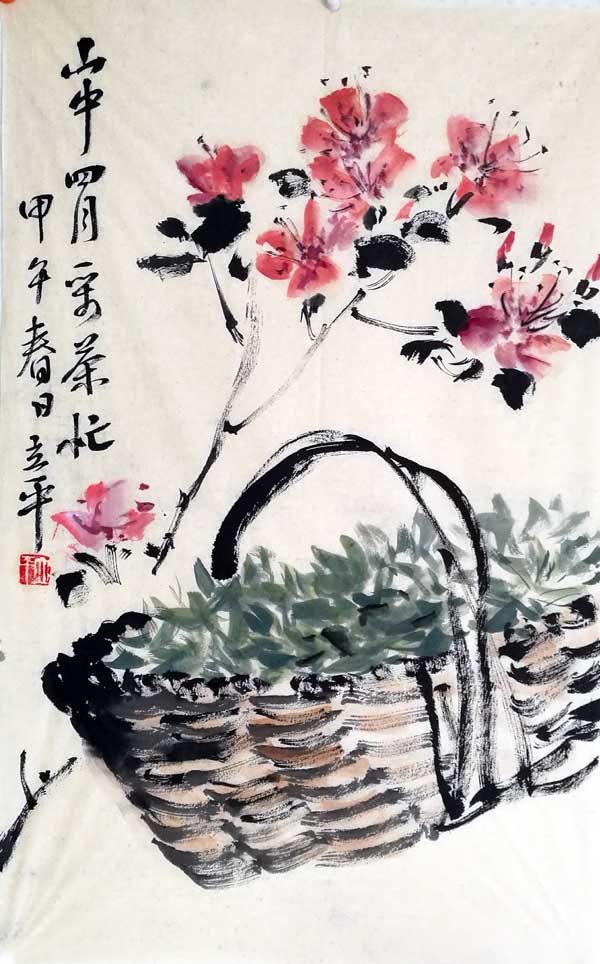 山中四月采茶忙
甲午春日立平